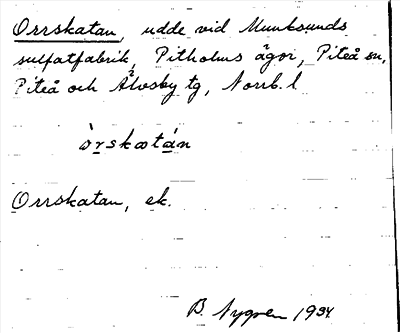 Orrskatan, udde vid Munksunds
sulfatfabrik, Pitholms ägor, Piteå sn,
Piteå och Älvsby tg, Norrb. l
òrskatán
Orrskatan, ek.
B. Nygren 1934